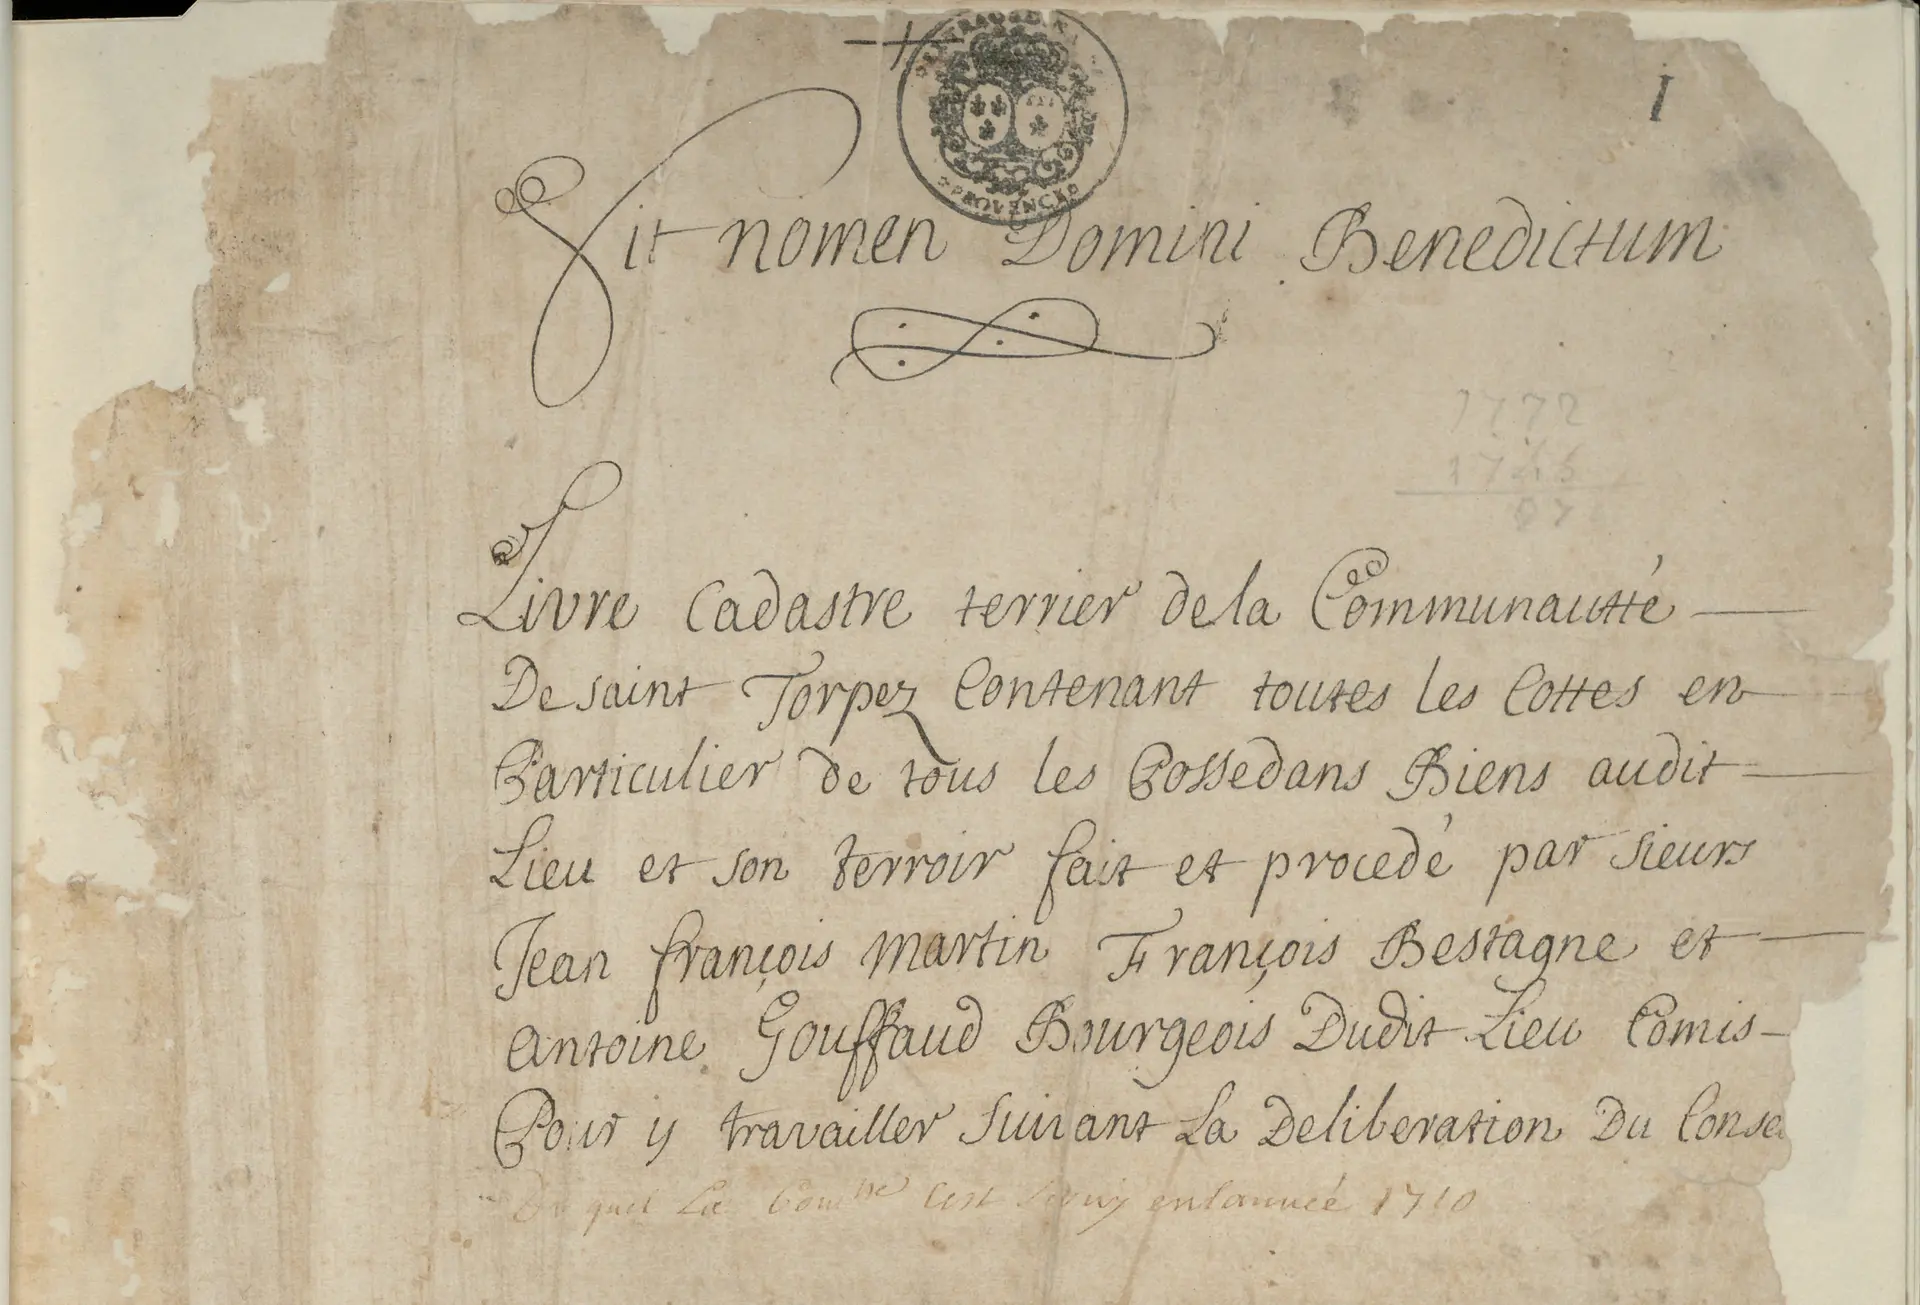 I
Sit nomen Domini Benedictum
1772
Livre Cadastre terrier de la Communautté
De saint Torpez Contenant toutes les Cottes en
Particulier de tous les Possedans Biens audit
Lieu et son terroir fait et procedé par sieurs
Jean françois martin François Bestagne et
Antoine Gouffaud Bourgeois Dudit Lieu Comis
Pour y travailler suivant La Deliberation Du Conse
Du quel La Com.té s'est servy en l'année 1710
PROVENCE